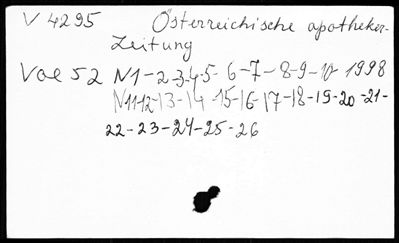 V 4295 Österreichische apotheker-
Zeitung
Vol 52 N1-2-3-4-5-6-7-8-9-10 1998
N11-12-13-14-15-16-17-18-19-20-21-
22-23-24-25-26